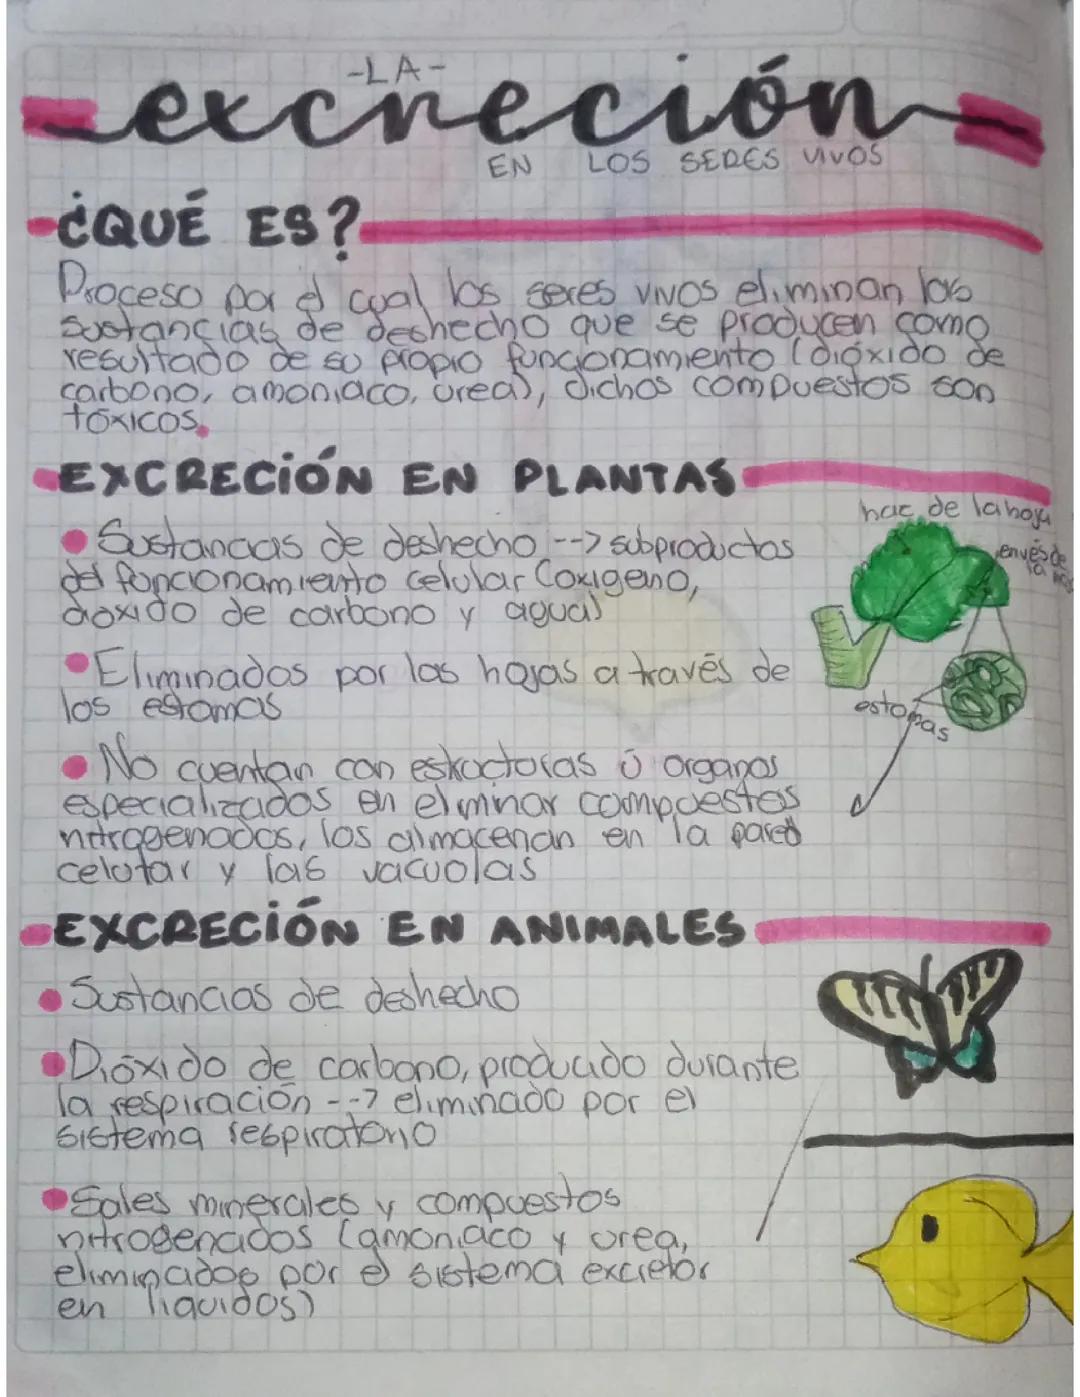 -LA-
excreción
EN LOS SERES VIVOS
¿QUÉ ES?
Proceso por el cual los seres vivos eliminan las
sustancias de deshecho que se producen como
resultado de su propio funcionamiento (dióxido de
carbono, amoniaco, urea), dichos compuestos son
tóxicos.
EXCRECIÓN EN PLANTAS
haz de la hoja
envés de
la hoja
• Sustancias de deshecho --> subproductos
del funcionamiento celular (oxigeno,
dioxido de carbono y agua)
• Eliminados por las hojas a través de
los estomas
estomas
• No cuentan con estructuras ó organos
especializados en eliminar compuestos
nitrogenados, los almacenan en la pared
celular y las vacuolas
EXCRECIÓN EN ANIMALES
• Sustancias de deshecho
• Dióxido de carbono, producido durante
la respiración --> eliminado por el
sistema respiratorio
• Sales minerales y compuestos
nitrogenados (amoniaco y urea,
eliminados por el sistema excretor
en liquidos)